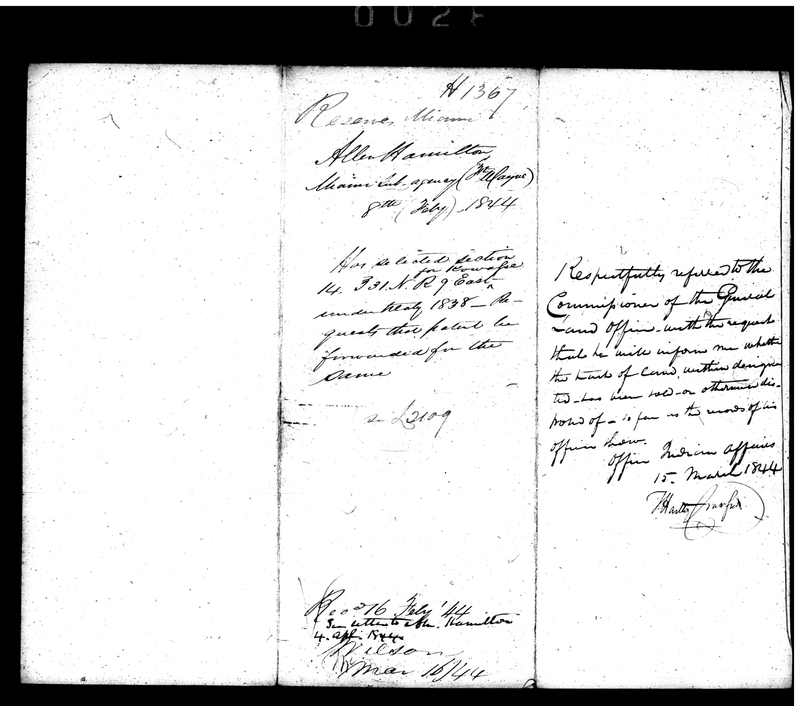 H 1367
Reserves Miami
Allen Hamilton
Miami Sub-agency (Ft Wayne)
8th (Feby) 1844
Has selected section
for
14. T 31 N. R 9 East
under treaty 1838 - Re-
quests that patent be
forwarded for the
same
L 2109
Recd 16 Feby '44
See letter to Hamilton
4. Apl. 1844
Wilson
Mar 16/44
Respectfully referred to the
Commissioner of the General
Land Office - with the request
that he will inform me whether
the tract of land, within designa-
ted - has been sold - or otherwise dis-
posed of - so far as the records of his
office show.
Office Indian Affairs
15. March 1844
T. Hartley Crawford